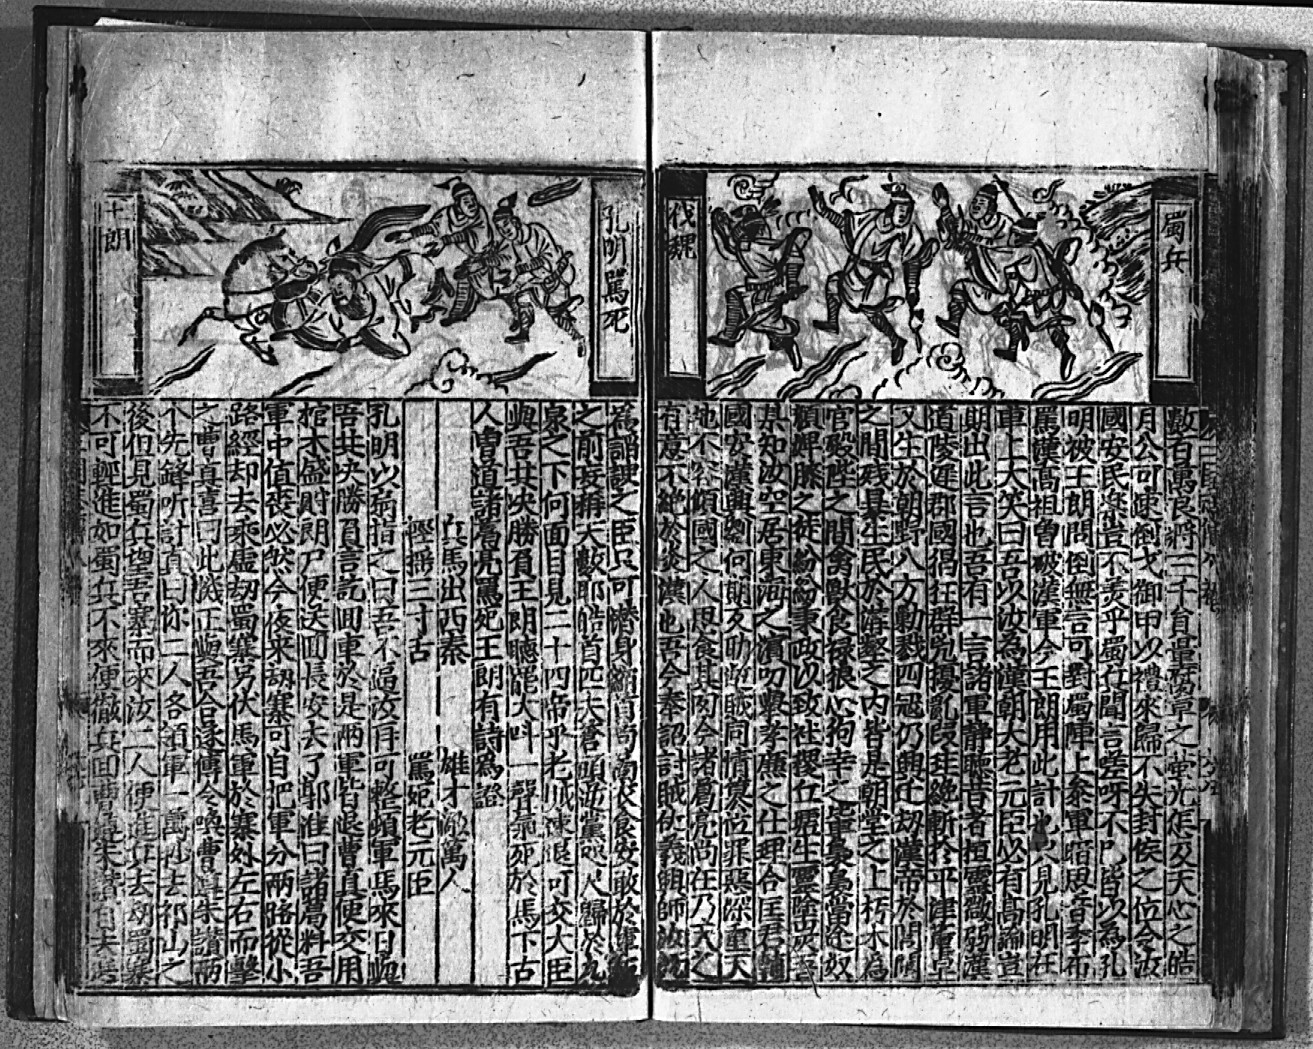 蜀兵
伐魏
數百萬良將二千員量腐草之螢光怎及天心之皓
月公可速倒戈御甲以禮來歸不失封侯之位令汝
國安民樂豈不美乎蜀兵聞言嗟呀不凡皆以為孔
明被王朗問倒無言可對蜀陣上參軍暗思音季布
罵漢高祖曾破漢軍今王朗用此計也只見孔明在
車上大笑曰吾以汝為漢朝大老元臣必有高論豈
期出此言也吾有一言諸軍靜聽昔者桓靈微弱漢
道陵遲郡國倡狂群兇擾亂段珪絶斬於平津董卓
又生於朝野八方勦戮四冦仍興迁刼漢帝於閭閻
之間殘暴生民於溝壑之内皆是朝堂之上朽木為
官殿陛之間禽獸食祿狼心狗幸之軰袞袞當途奴
顏婢膝之徒紛紛秉政以致社稷丘墟生靈塗炭吾
某知汝空居東海之濱叨舉孝廉之仕理合匡君輔
國安漢興劉何期反助逆賊同情篡位罪惡深重天
地不容傾國之人思食其肉今諸葛亮尚在乃天之
有意不絶於炎漢也吾今奉詔討賊仗義興師汝
孔明罵死
王朗
為謟諛之臣只可濳身縮首尚圖衣食安敢於軍伍
之前妄稱天數耶皓首匹夫蒼頭逆黨
泉之下何面目見二十四帝乎老賊速退可交大臣
與吾共决勝負王朗聽罷大呌一聲氣死於馬下古
人曾道諸葛亮罵死王朗有詩為證
兵馬出西秦 雄才敵萬人
輕搖三寸舌 罵死老元臣
孔明以扇指之曰吾不逼汝自可整頓軍馬來日與
吾共决勝負言訖囬車於是兩軍皆退曹真便交用
棺木盛貯朗尸便送囬長安去了郭淮曰諸葛料吾
軍中值喪必然今夜來刼寨可自把軍分兩路從小
路經却去乘虛刼蜀寨另伏馬軍於寨外左右而擊
之曹真喜曰此機正與吾合遂傳令喚曹遵朱讃兩
个先鋒听計真曰你二人各領軍一萬抄去祁山之
後但見蜀兵望吾寨而來汝二人便進兵去刼蜀寨
不可輕進如蜀兵不來便徹兵囬曹遵朱讃自去